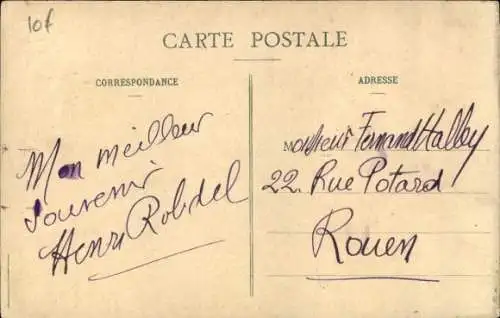 10f
CARTE POSTALE
CORRESPONDANCE
ADRESSE
Mon meilleur
souvenir
Henri
Monsieur Fernand Halley
22. Rue Potard
Rouen